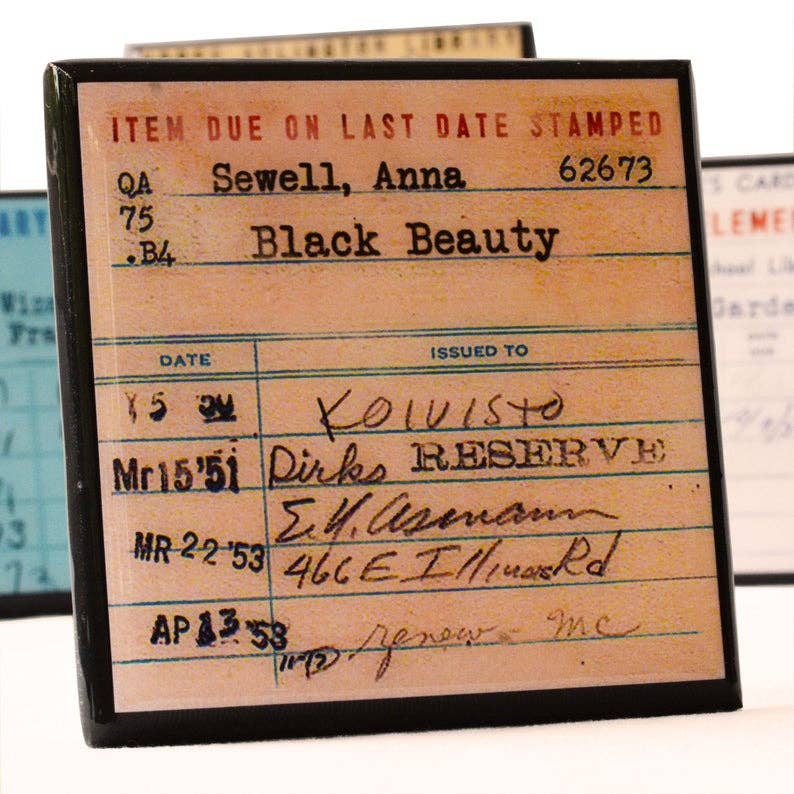 ITEM DUE ON LAST DATE STAMPED
QA Sewell, Anna 62673
75
.B4 Black Beauty
DATE ISSUED TO
Koivisto
Mr15'51 Dirks RESERVE
E.H. Asmann
MR 22 '53 466 E Illinois Rd
AP 13 '53 renew - mc
ARY
Fra
'S CARD
LEMEN
Garde